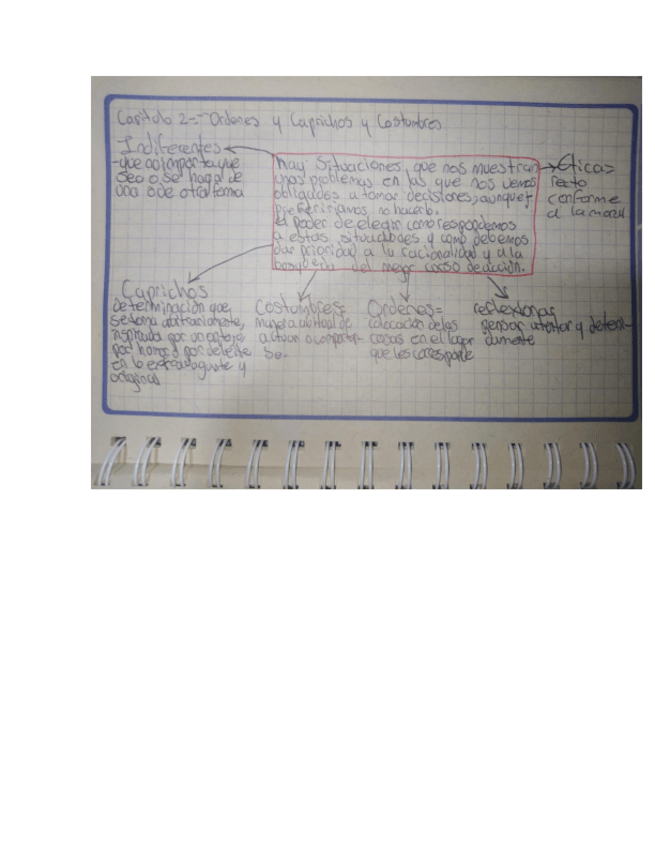 Capitulo 2-- Ordenes y Caprichos y Costumbres
Indiferentes
-que no importa que
sea o se haga de
una o de otra forma
hay situaciones, que nos muestran
unos problemas en las que nos vemos
obligados a tomar decisiones, aunque
preferiríamos no hacerlo.
el poder de elegir como respondemos
a estas situaciones y como debemos
dar prioridad a la racionalidad y a la
busqueda del mejor curso de acción.
Etica=
recto
conforme
a la moral
Caprichos
determinación que
se toma arbitrariamente,
inspirada por un antojo,
por humor o por deleite
en lo extravagante y
original
Costumbres=
manera habitual de
actuar o comportar-
se.
Ordenes=
colocación de las
cosas en el lugar
que les corresponde
reflexionar
pensar atenta y deteni-
damente